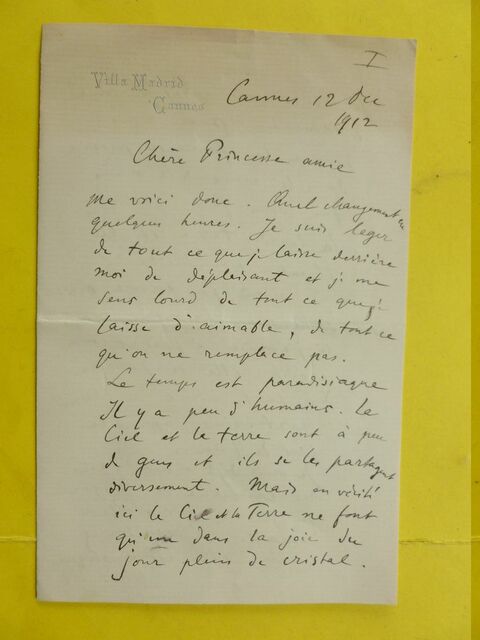 I
Villa Madrid
Cannes
Cannes 12 Dec
1912
Chère Princesse amie
me voici donc. Quel changement en
quelques heures. Je suis léger
de tout ce que je laisse derrière
moi de déplaisant et je me
sens lourd de tout ce que je
laisse d'aimable, de tout ce
qu'on ne remplace pas.
Le temps est paradisiaque
Il y a peu d'humains. Le
Ciel et la terre sont à peu
de gens et ils se les partagent
diversement. Mais en vérité
ici le Ciel et la Terre ne font
qu'un dans la joie du
jour plein de cristal.